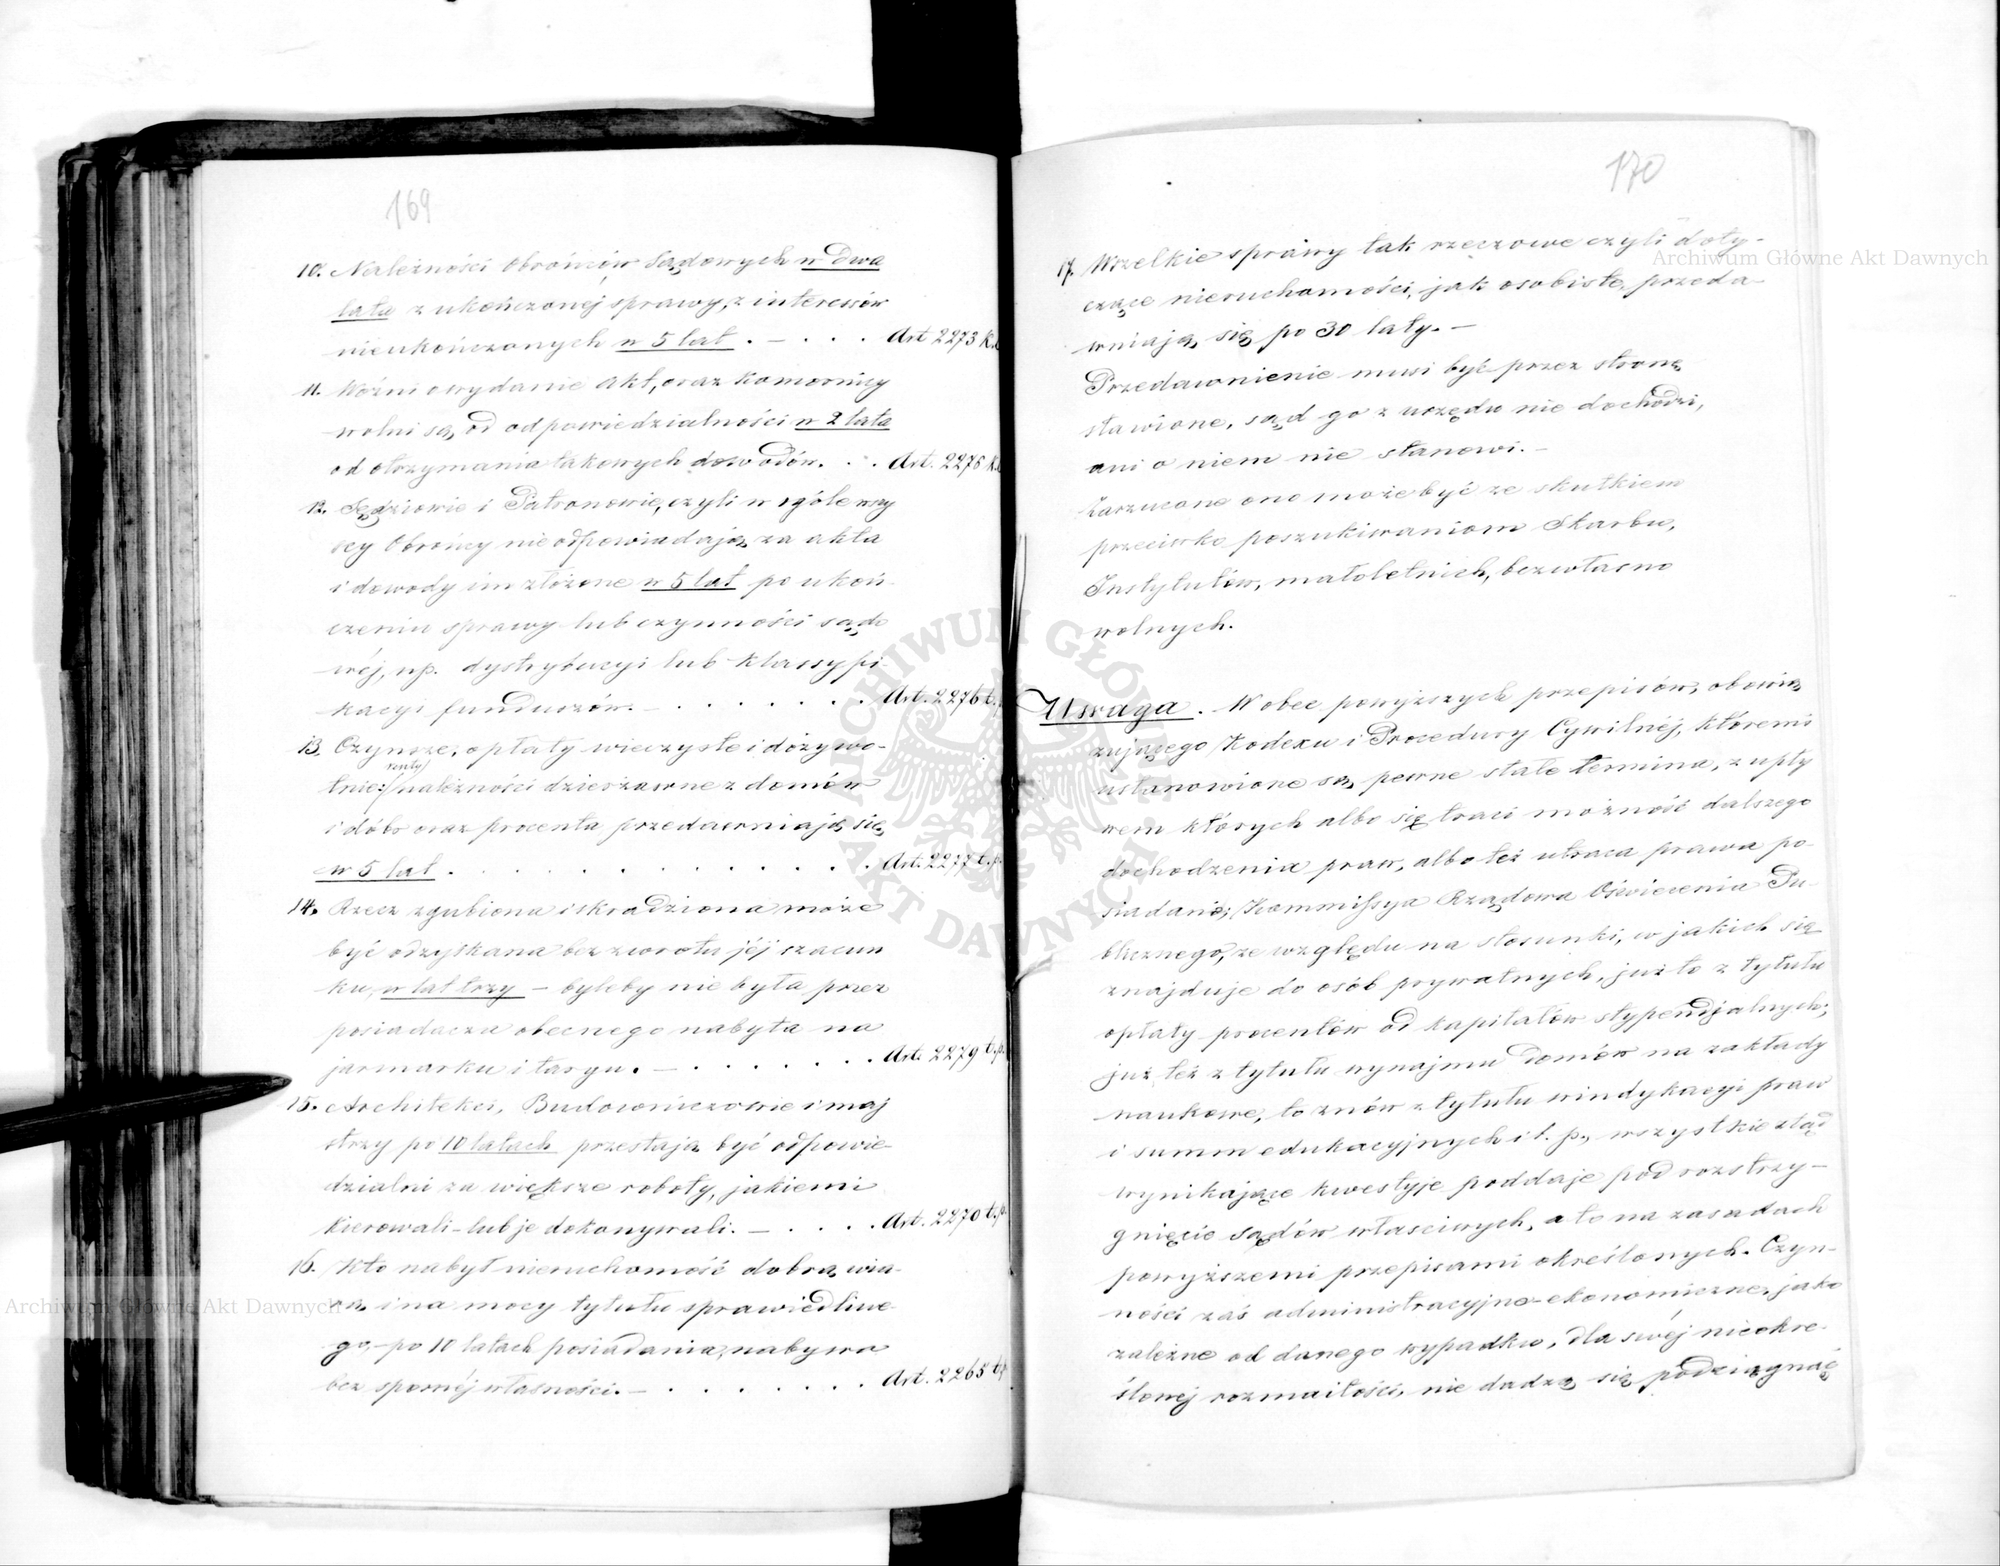 169
10. Należności obrońców Sądowych w dwa
lata z ukończonéj sprawy, z interesów
nieukończonych w 5 lat . — . . . Art 2273 K.
11. Woźni o wydanie akt, oraz komornicy
wolni są, od odpowiedzialności w 2 lata
od otrzymania takowych dowodów. . . Art. 2276 K.
12. Sędziowie i Patronowie, czyli w ogóle wszy
scy Obrońcy nie odpowiadają za akta
i dowody im złożone w 5 lat po ukoń-
czeniu sprawy lub czynności sądo
wéj, np. dystrybucyi lub klassyfi-
kacyi funduszów. — . . . . . . Art. 2276 t.
13. Czynsze, opłaty wieczyste i dożywo-
renty
tnie; należności dzierżawne z domów
i dóbr oraz procenta przedawniają się,
w 5 lat . . . . . . . . . . . Art. 2277 t.p.
14. Rzecz zgubiona i skradziona może
być odzyskana bez zwrotu jéj szacun
ku, w lat trzy — byleby nie była przez
posiadacza obecnego nabyta na
jarmarku i targu. — . . . . . . Art. 2279 t.p.
15. Architekci, Budowniczowie i maj
strzy po 10 latach przestają być odpowie
dzialni za większe roboty, jakiemi
kierowali - lub je dokonywali. — . . . . Art. 2270 t.p.
16. Kto nabył nieruchomość dobrą wia-
rą, i na mocy tytułu sprawiedliwe-
go, — po 10 latach posiadania, nabywa
bez spornéj własności. — . . . . . . . Art. 2265 t.p
170
17. Wszelkie sprawy tak rzeczowe czyli doty-
czące nieruchomości, jak osobiste, przeda-
wniają się po 30 laty. —
Przedawnienie musi być przez stronę
stawione, sąd go z urzędu nie dochodzi,
ani o niem nie stanowi. —
Zarzucone ono może być ze skutkiem
przeciwko poszukiwaniom Skarbu,
Instytutów, małoletnich, bezwłasno
wolnych.
Uwaga. Wobec powyższych przepisów, obowią
zującego Kodexu i Procedury Cywilnéj, któremi
ustanowione są, pewne stałe termina, z upły
wem których albo się traci możność dalszego
dochodzenia praw, albo też utraca prawa po-
siadania; Kommissya Rządowa Oświecenia Pu-
blicznego, ze względu na stosunki, w jakich się
znajduje do osób prywatnych, już to z tytułu
opłaty procentów od kapitałów stypendjalnych;
już też z tytułu wynajmu domów na zakłady
naukowe, to znów z tytułu windykacyi praw
i summ edukacyjnych i t. p., wszystkie ztąd
wynikające kwestyje poddaje pod rozstrzy-
gnięcie sądów właściwych, a to na zasadach
powyższemi przepisami określonych. Czyn-
ności zaś administracyjno-ekonomiczne, jako
zależne od danego wypadku, dla swéj nieokre-
ślonéj rozmaitości, nie dadzą się podciągnąć
Archiwum Główne Akt Dawnych
Archiwum Główne Akt Dawnych
ARCHIWUM GŁÓWNE AKT DAWNYCH